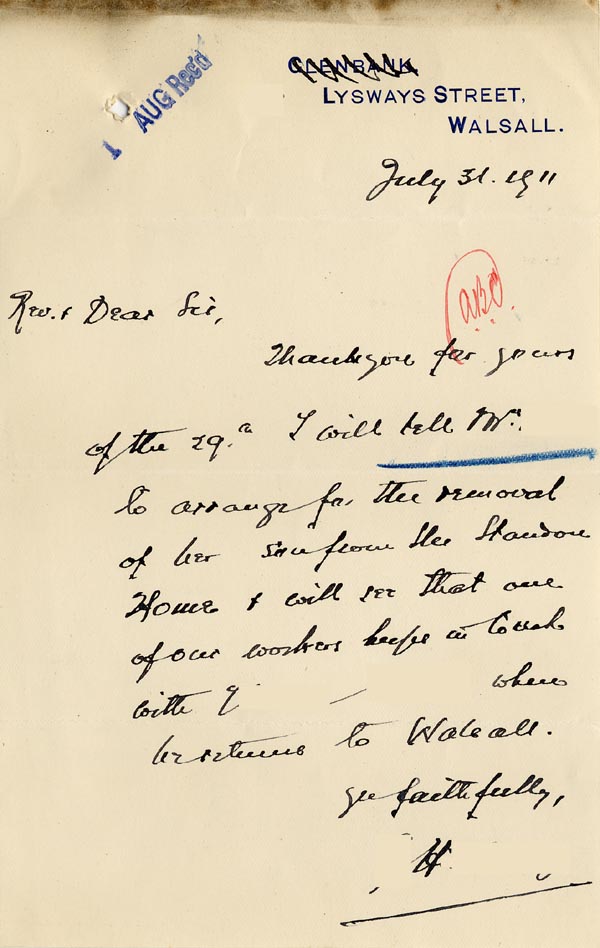 GLENBANK
LYSWAYS STREET,
WALSALL.
1 AUG Rec'd
July 31. 1911
ABC
Rev. & Dear Sir,
Thank you for yours
of the 29th I will tell Mrs.
to arrange for the removal
of her son from the Standon
Home & will see that one
of our workers keeps in touch
with
when
he returns to Walsall.
yrs faithfully,
H